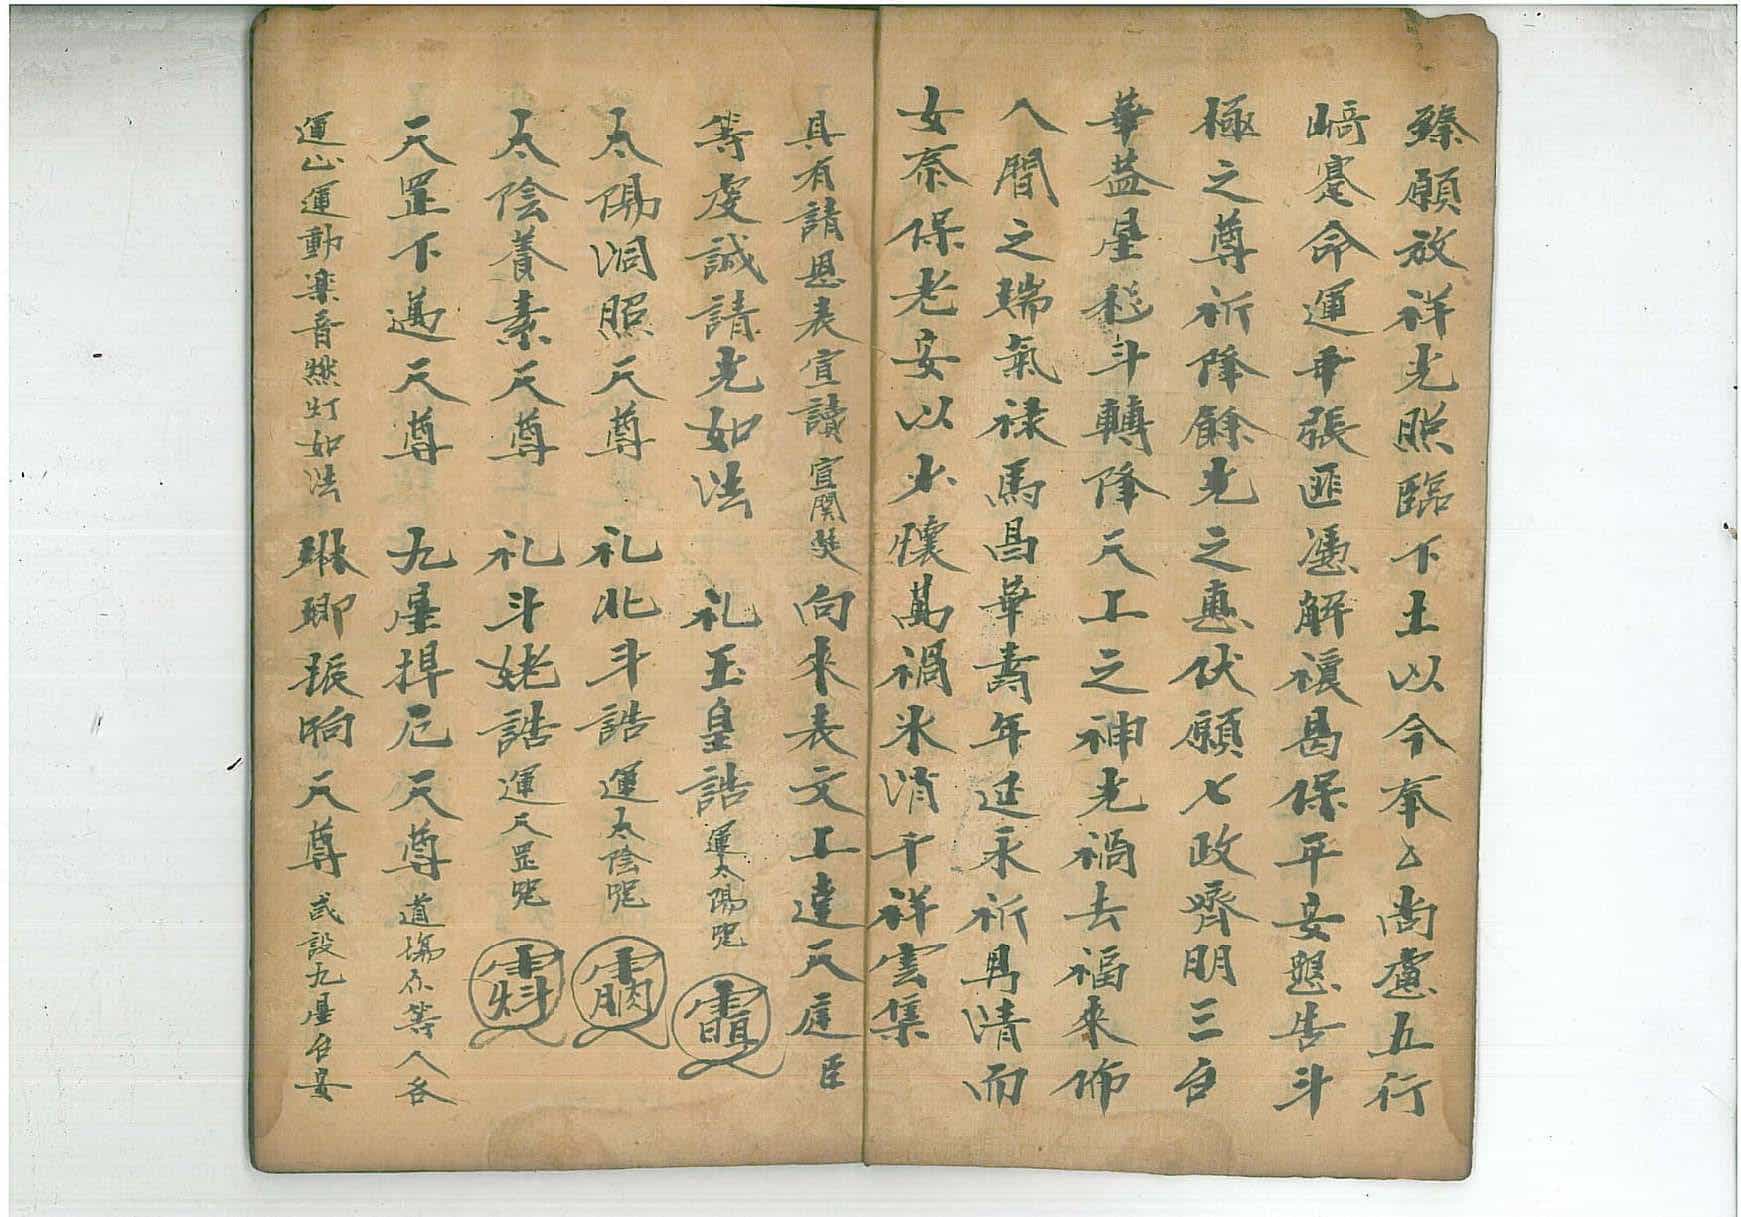 臻願放祥光照臨下土以今奉〻尚慮五行
﨑蹇命運乖張匪憑解禳曷保平安懇告斗
極之尊祈降餘光之惠伏願七政齊明三台
華蓋星移斗轉降天上之神光禍去福來佈
人間之瑞氣祿馬昌華壽年延永祈男情而
女泰保老安以少懷萬禍氷消千祥雲集
具有請恩表宣讀宣関奘向來表文上達天庭臣
等虔誠請光如法 礼玉皇誥運太陽咒
太陽洞照天尊 礼北斗誥運太陰咒
太陰養素天尊 礼斗姥誥運天罡咒
天罡下邁天尊 九星捍厄天尊道塲你等人各
運心運動楽音燃灯如法 琳瑯振响天尊或設九星召安